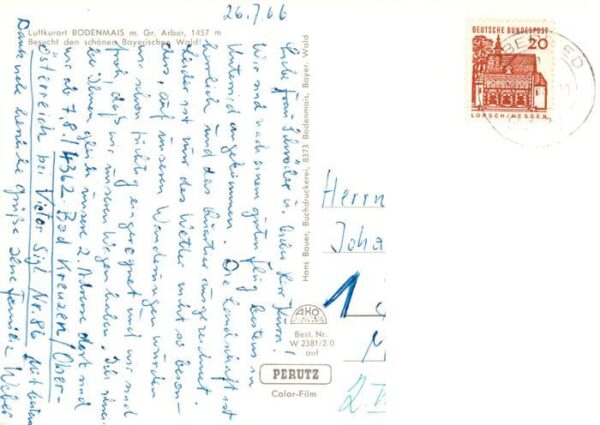 26.7.66
Luftkurort BODENMAIS m. Gr. Arber, 1457 m
Besucht den schönen Bayerischen Wald!
Liebe Frau u. lieber Herr
Wir sind nach einem guten Flug bestens in
Unterried angekommen. Die Landschaft ist
herrlich und das Quartier ausgezeichnet.
Leider ist nur das Wetter nicht so beson-
ders, auf unseren Wanderungen wurden
wir schon tüchtig eingeregnet und wir sind
froh, daß wir unseren Wagen haben. Ich
Ihnen gleich unsere 2. Adresse, dort sind
wir ab 7.8./4362 Bad Kreuzen/Ober-
österreich bei Victor Sigl Nr. 86 Mit bestem
Dank viele herzliche Grüße Ihre Familie Weber
Hans Bauer, Buchdruckerei, 8373 Bodenmais, Bayer. Wald
AKO
Best. Nr.
W 2381/2.0
auf
PERUTZ
Color-Film
DEUTSCHE BUNDESPOST
20
LORSCH/HESSEN
Herrn
Joha
1